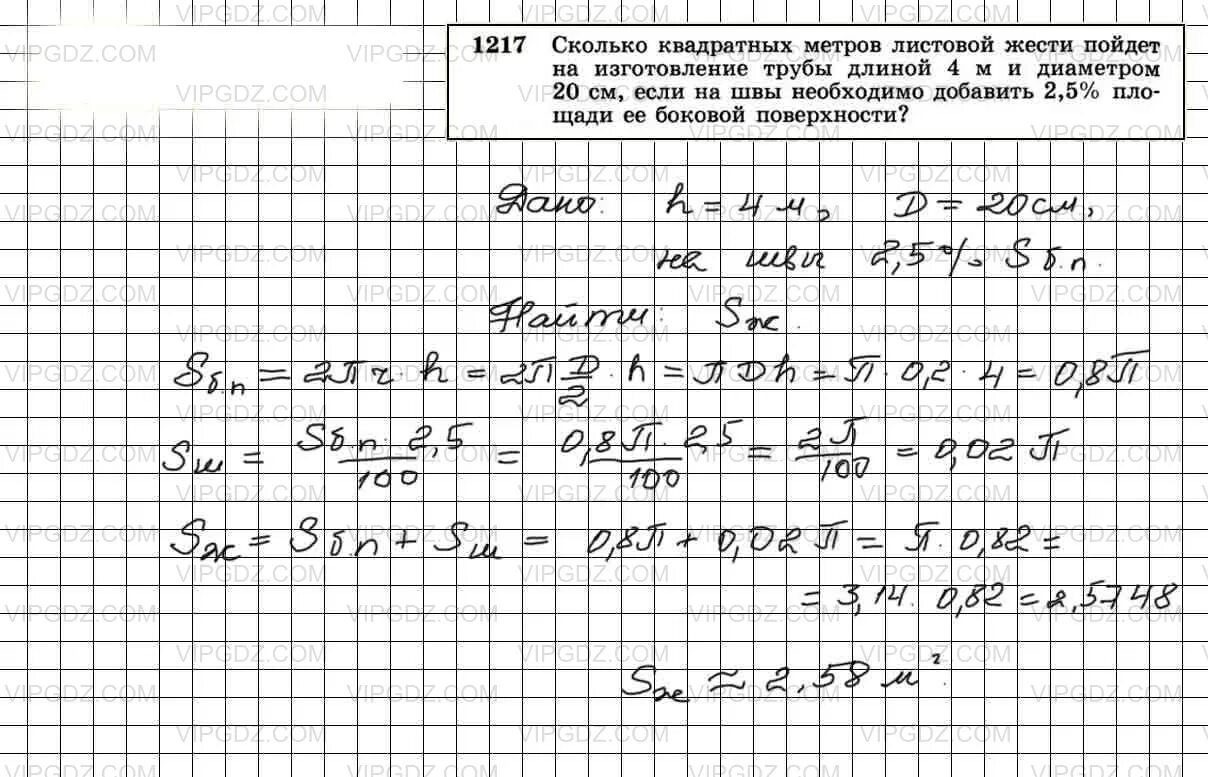 1217 Сколько квадратных метров листовой жести пойдет
на изготовление трубы длиной 4 м и диаметром
20 см, если на швы необходимо добавить 2,5% пло-
щади ее боковой поверхности?
Дано: h = 4 м, D = 20 см,
на швы 2,5% Sб.п.
Найти: Sж.
Sб.п = 2πr · h = 2π D/2 · h = πDh = π · 0,2 · 4 = 0,8π
Sш = Sб.п. · 2,5/100 = 0,8π · 2,5/100 = 2π/100 = 0,02 π
Sж = Sб.п + Sш = 0,8π + 0,02 π = π · 0,82 =
= 3,14 · 0,82 = 2,5748
Sж ≈ 2,58 м².
VIPGDZ.COM